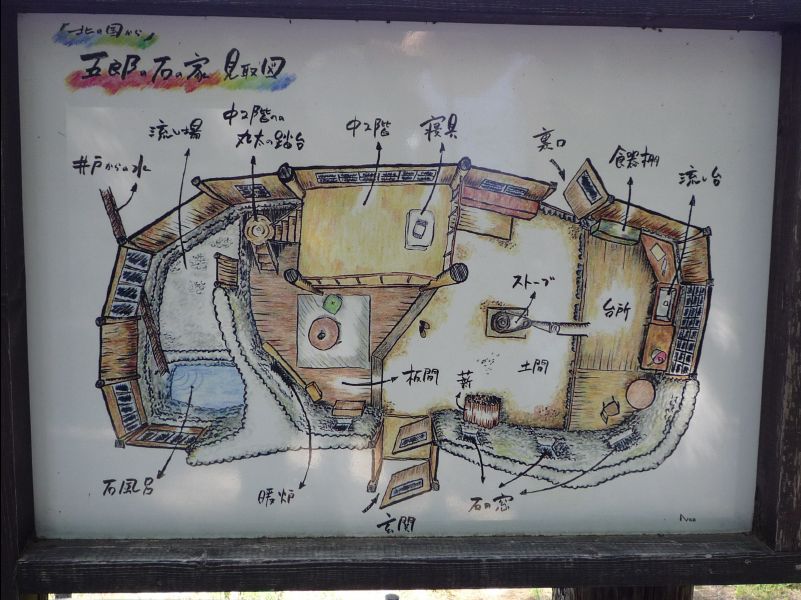 「北の国から」
五郎の石の家 見取図
中2階への
丸太の踏台
流し場
井戸からの水
中2階
寝具
裏口
食器棚
流し台
ストーブ
台所
土間
薪
板間
石風呂
暖炉
玄関
石の窓